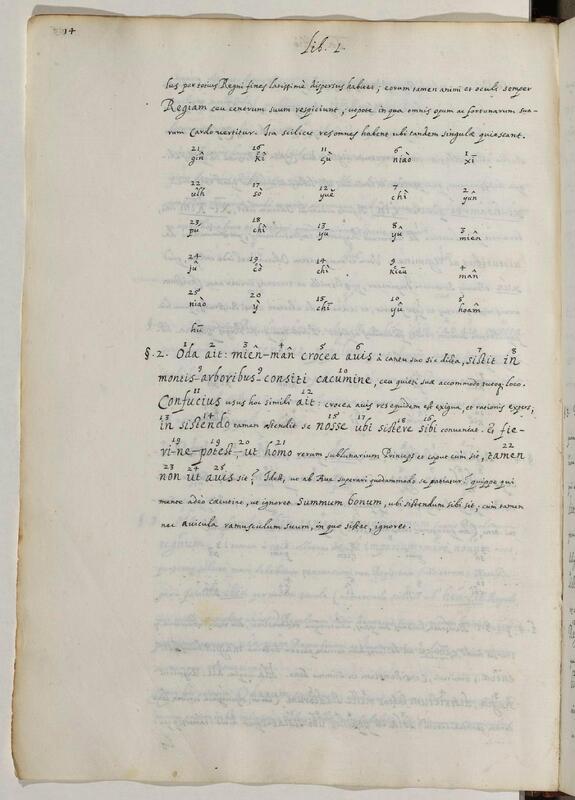 14
Lib. 1.
lus per totius Regni fines latissimè dispersus habitet; eorum tamen animi et oculi semper
Regiam ceu centrum suum respiciunt, utpote in qua omnis opum ac fortunarum sua-
rum Cardo vertitur. Ita scilicet res omnes habent ubi tandem singulæ quiescant.
21 16 11 6 1
gîn kì niào xī
22 17 12 7 2
sò yuĕ chì yûn
23 18 13 8 3
pŭ chì yū yû miên
24 19 14 9 4
jû chì kiēū mân
25 20 15 10 5
niào ỳ chī yû hoâm
hū
§. 2. Oda ait: miên-mân crocea avis à cantu suo sic dicta, sistit in
montis arboribus consiti cacumine, ceu quieti suæ accommodo loco.
Confucius usus hoc simili ait: crocea avis res equidem est exigua, et rationis expers,
in sistendo tamen ostendit se nosse ubi sistere sibi conveniat. Et fie-
ri-ne-potest ut homo rerum sublunarium Princeps et caput cum sit, tamen
non ut avis sit? Idest, ut ab Ave superari quodammodo se patiatur? quippe qui
mente adeo cæcutiat, ut ignoret summum bonum, ubi sistendum sibi sit; cum tamen
nec avicula ramusculum suum, in quo sistat, ignoret.